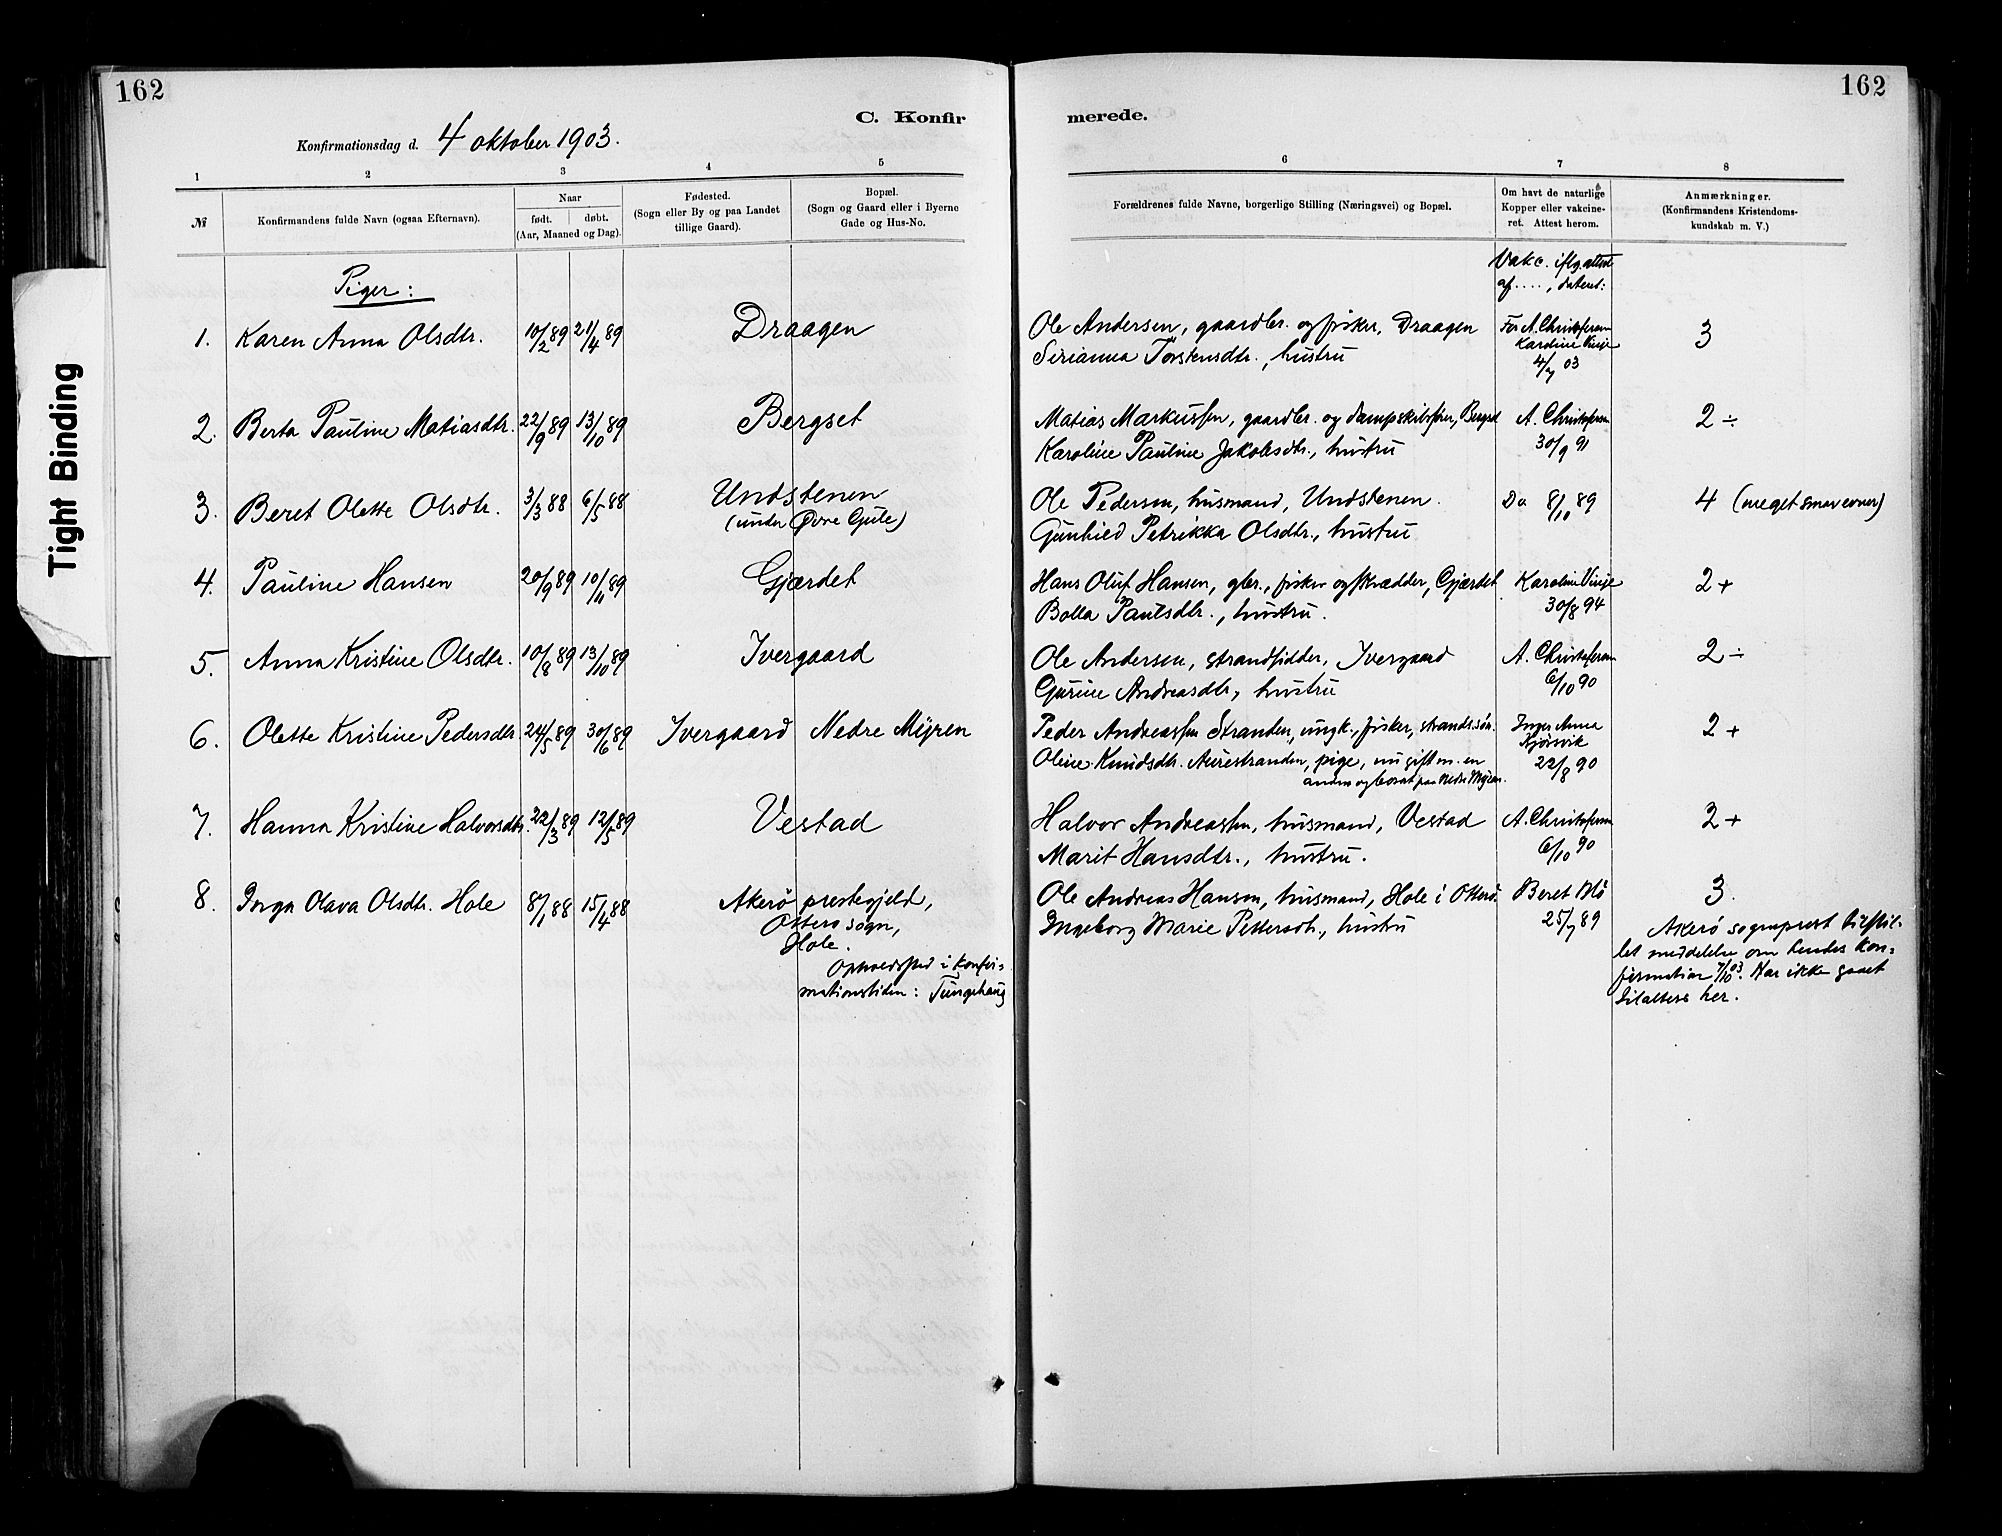 162
162
C. Konfir merede.
Konfirmationsdag d. 4 oktober 1903.
1 2 3 4 5 6 7 8
№
Konfirmandens fulde Navn (ogsaa Efternavn).
Naar
født. døbt.
(Aar, Maaned og Dag).
Fødested.
(Sogn eller By og paa Landet
tillige Gaard).
Bopæl.
(Sogn og Gaard eller i Byerne
Gade og Hus-No.
Forældrenes fulde Navne, borgerlige Stilling (Næringsvei) og Bopæl.
Om havt de naturlige
Kopper eller vakcine-
ret. Attest herom.
Anmærkninger.
(Konfirmandens Kristendoms-
kundskab m. V.)
Vakc. iflg. attest
af ...., dateret:
Piger:
1. Karen Anna Olsdtr. 10/2 89 21/4 89 Draagen Ole Andersen, gaardbr. og fisker, Draagen For A. Christofersen 3
Serianna Torstensdtr., hustru Karoline Vinje
4/7 03
2. Berta Pauline Matiasdtr. 22/9 89 13/10 89 Bergset Matias Markussen, gaardbr. og dampskibsfører, Bergset A. Christofersen 2 ÷
Karoline Pauline Jakobsdtr., hustru 30/9 91
3. Beret Olette Olsdtr. 3/3 88 6/5 88 Undstenen Ole Pedersen, husmand, Undstenen. Do 8/10 89 4 (meget smaa evner)
(under Øvre Gule) Gunhild Petrikka Olsdtr., hustru
4. Pauline Hansen 20/9 89 10/11 89 Gjærdet Hans Oluf Hansen, gbr., fisker og skrædder, Gjærdet Karoline Vinje 2 +
Bolla Paulsdtr., hustru. 30/8 94
5. Anna Kristine Olsdtr. 10/8 89 13/10 89 Ivergaard Ole Andersen, strandsidder, Ivergaard A. Christofersen 2 ÷
Gurine Andreasdtr, hustru 6/10 90
6. Olette Kristine Pedersdtr 24/5 89 30/6 89 Ivergaard Nedre Myren Peder Andreassen Stranden, ungk., fisker, strands.søn. Inger Anna 2 +
Kjørsvik
Oline Knudsdtr. Aurestranden, pige, nu gift m. en 22/8 90
anden og bosat paa Nedre Myren.
7. Hanna Kristine Halvorsdtr. 22/3 89 12/5 89 Vestad Halvor Andreassen, husmand, Vestad A. Christofersen 2 +
Marit Hansdtr., hustru. 6/10 90
8. Inga Olava Olsdtr. Hole 8/1 88 15/4 88 Akerø prestegjeld, Ole Andreas Hansen, husmand, Hole i Otterø. Beret Mo 3.
Otterø sogn, Ingeborg Marie Pettersdtr., hustru 25/7 89
Hole.
Opholdssted i konfir-
mationstiden: Tungehaug
Akerø sogneprest tilstil-
let meddelelse om hendes kon-
firmation 7/10 03. Har ikke gaaet
til alters her.
Tight Binding